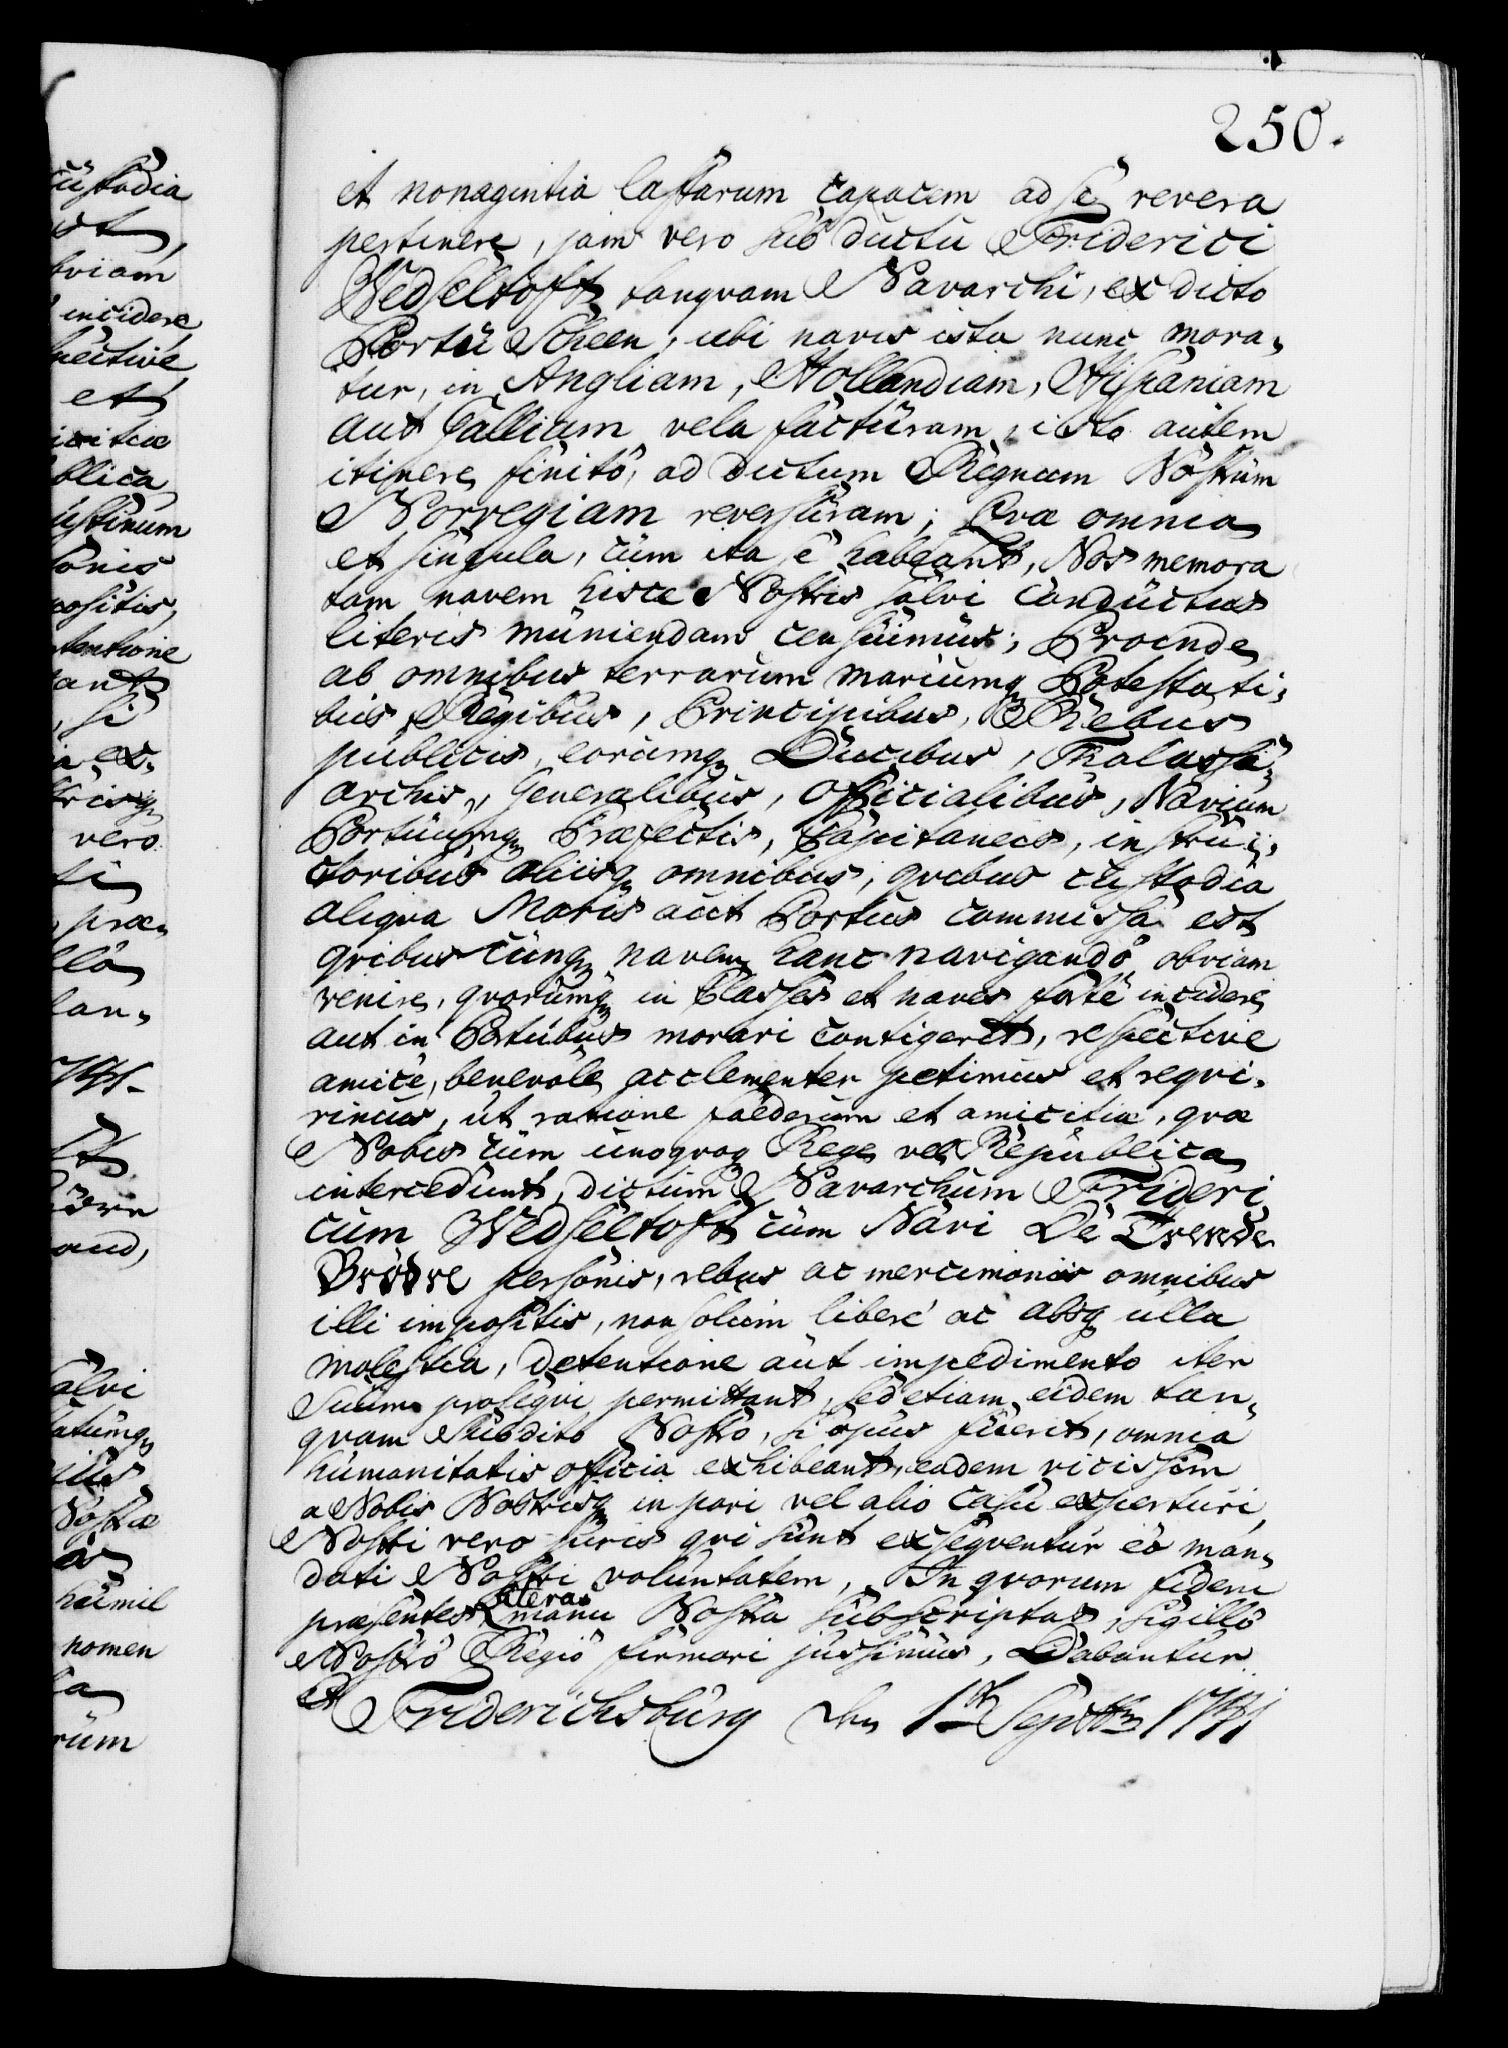 250.
et nonagintia lastarum capacem ad se revera
pertinere, jam vero sub ductu Friderici
Wedseltoft tanqvam Navarchi, ex dicto
Portu Scheen, ubi navis ista nunc mora-
tur, in Angliam, Hollandiam, Hispaniam
aut Galliam vela facturam, isto autem
itinere finito, ad dictum Regnum Nostrum
Norregiam reversuram; Qvæ omnia
et singula, cum ita se habeant, Nos memora
tam navem hisce Nostris salvi conductus
literis muniendam censuimus; Proinde
ab omnibus terrarum mariumq Potestati-
bus, Regibus, Principibus, Rebus
publicis, eorumq Ducibus, Thalassi-
archis, Generalibus, Officialibus, Navium
Portuumq Præfectis, Capitaneis, instru-
ctoribus aliisq omnibus, qvibus custodia
aliqva Maris aut Portus commissa est
qvibus cunq navem hanc navigando obviam
venire, qvorumq in Classes et naves forte incidere
aut in Portubus morari contigerit, respective
amice, benevole ac clementer petimus et reqvi-
rimus, ut ratione fœderum et amicitiæ, qvæ
Nobis cum unoqvoq Rege vel Republica
intercedunt, dictum Navarchum Frideri
cum Wedseltoft cum Navi De Trende
Brödre personis, rebus ac mercimoniis omnibus
illi impositis, non solum libere ac absq ulla
molestia, detentione aut impedimento iter
suum proseqvi permittant, sed etiam eidem tan-
qvam Subdito Nostro, si opus fuerit, omnia
humanitatis officia exhibeant, eadem vicissim
a Nobis Nostrisq in pari vel alio casu experturi,
Nostri vero juris qvi sunt exseqventur eo man-
dati Nostri voluntatem, In qvorum fidem
præsentes literas manu Nostra subscriptas, sigillo
Nostro Regio firmari jussimus, Dabantur
et Friderichsburg den 1st Septbr 1741